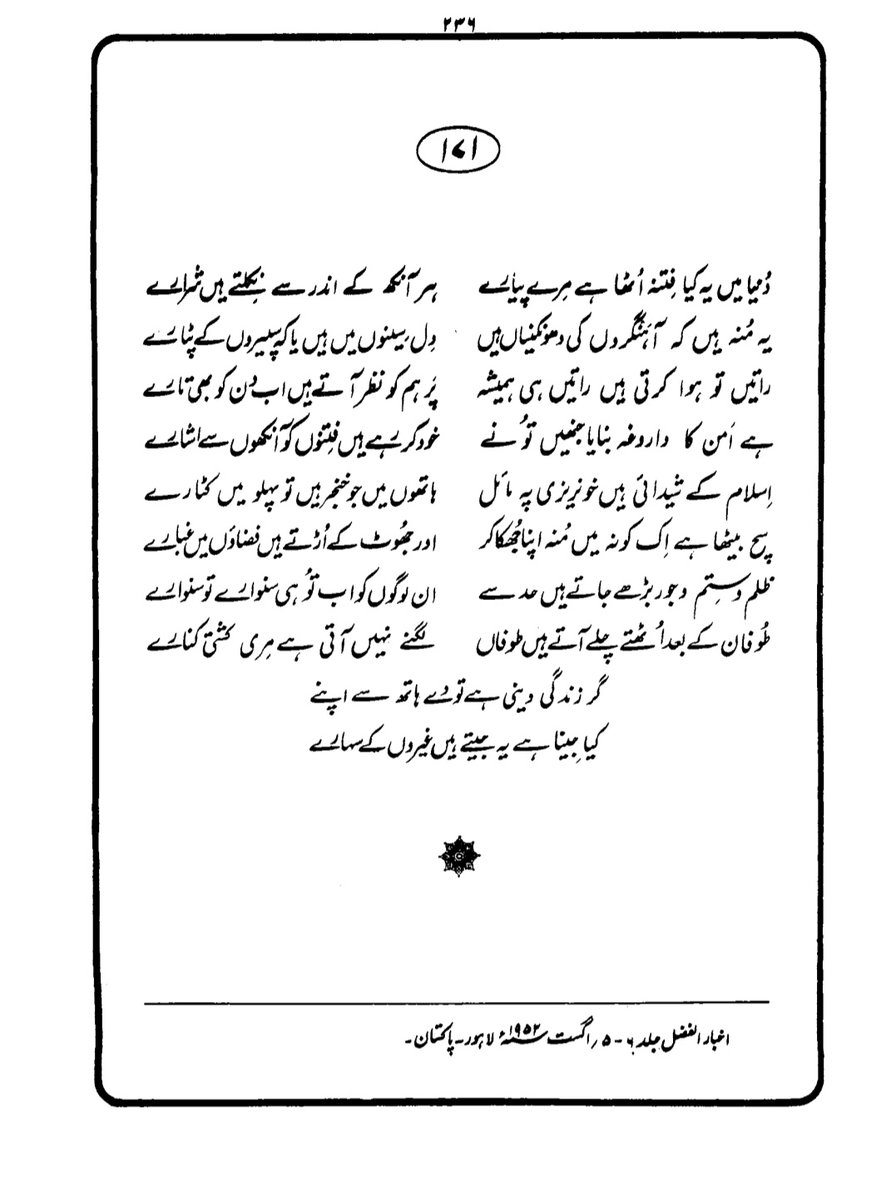 ۲۳۶
۱۷۱
دُنیا میں یہ کیا فِتنہ اُٹھا ہے مِرے پیارے ہر آنکھ کے اندر سے نِکلتے ہیں شرارے
یہ مُنہ ہیں کہ آہنگروں کی دھونکنیاں ہیں دِل سِینوں میں ہیں یا کہ سپیروں کے پٹارے
راتیں تو ہوا کرتی ہیں راتیں ہی ہمیشہ پَر ہم کو نظر آتے ہیں اب دن کو بھی تارے
ہے اَمن کا داروغہ بنایا جنھیں تُو نے خود کر رہے ہیں فِتنوں کو آنکھوں سے اشارے
اِسلام کے شیدائی ہیں خونریزی پہ مائل ہاتھوں میں جو خنجر ہیں تو پہلو میں کٹارے
سچ بیٹھا ہے اِک کونہ میں مُنہ اپنا جُھکا کر اور جُھوٹ کے اُڑتے ہیں فضاؤں میں غبارے
ظلم و ستم و جور بڑھے جاتے ہیں حد سے ان لوگوں کو اب تُو ہی سنوارے تو سنوارے
طُوفان کے بعد اُٹھتے چلے آتے ہیں طوفاں لگنے نہیں آتی ہے مِری کشتی کنارے
گر زندگی دینی ہے تو دے ہاتھ سے اپنے
کیا جِینا ہے یہ جیتے ہیں غیروں کے سہارے
اخبار الفضل جلد ۶ - ۵ / اگست ۱۹۵۲ء لاہور - پاکستان -